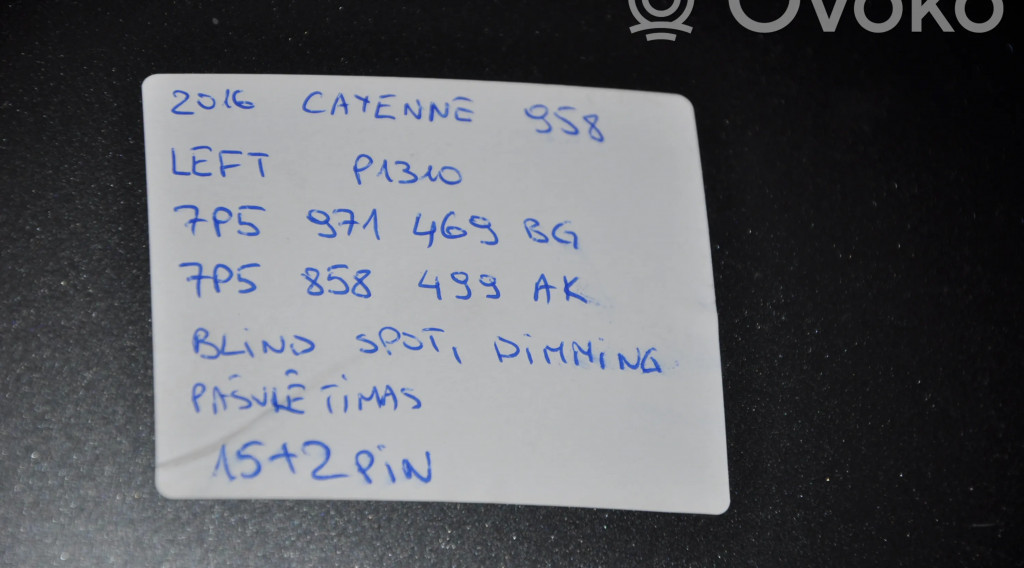 Ovoko
2016 CAYENNE 958
LEFT P1310
7P5 971 469 BG
7P5 858 499 AK
BLIND SPOT, DIMMING
PAŠVIĖTIMAS
15+2 PIN